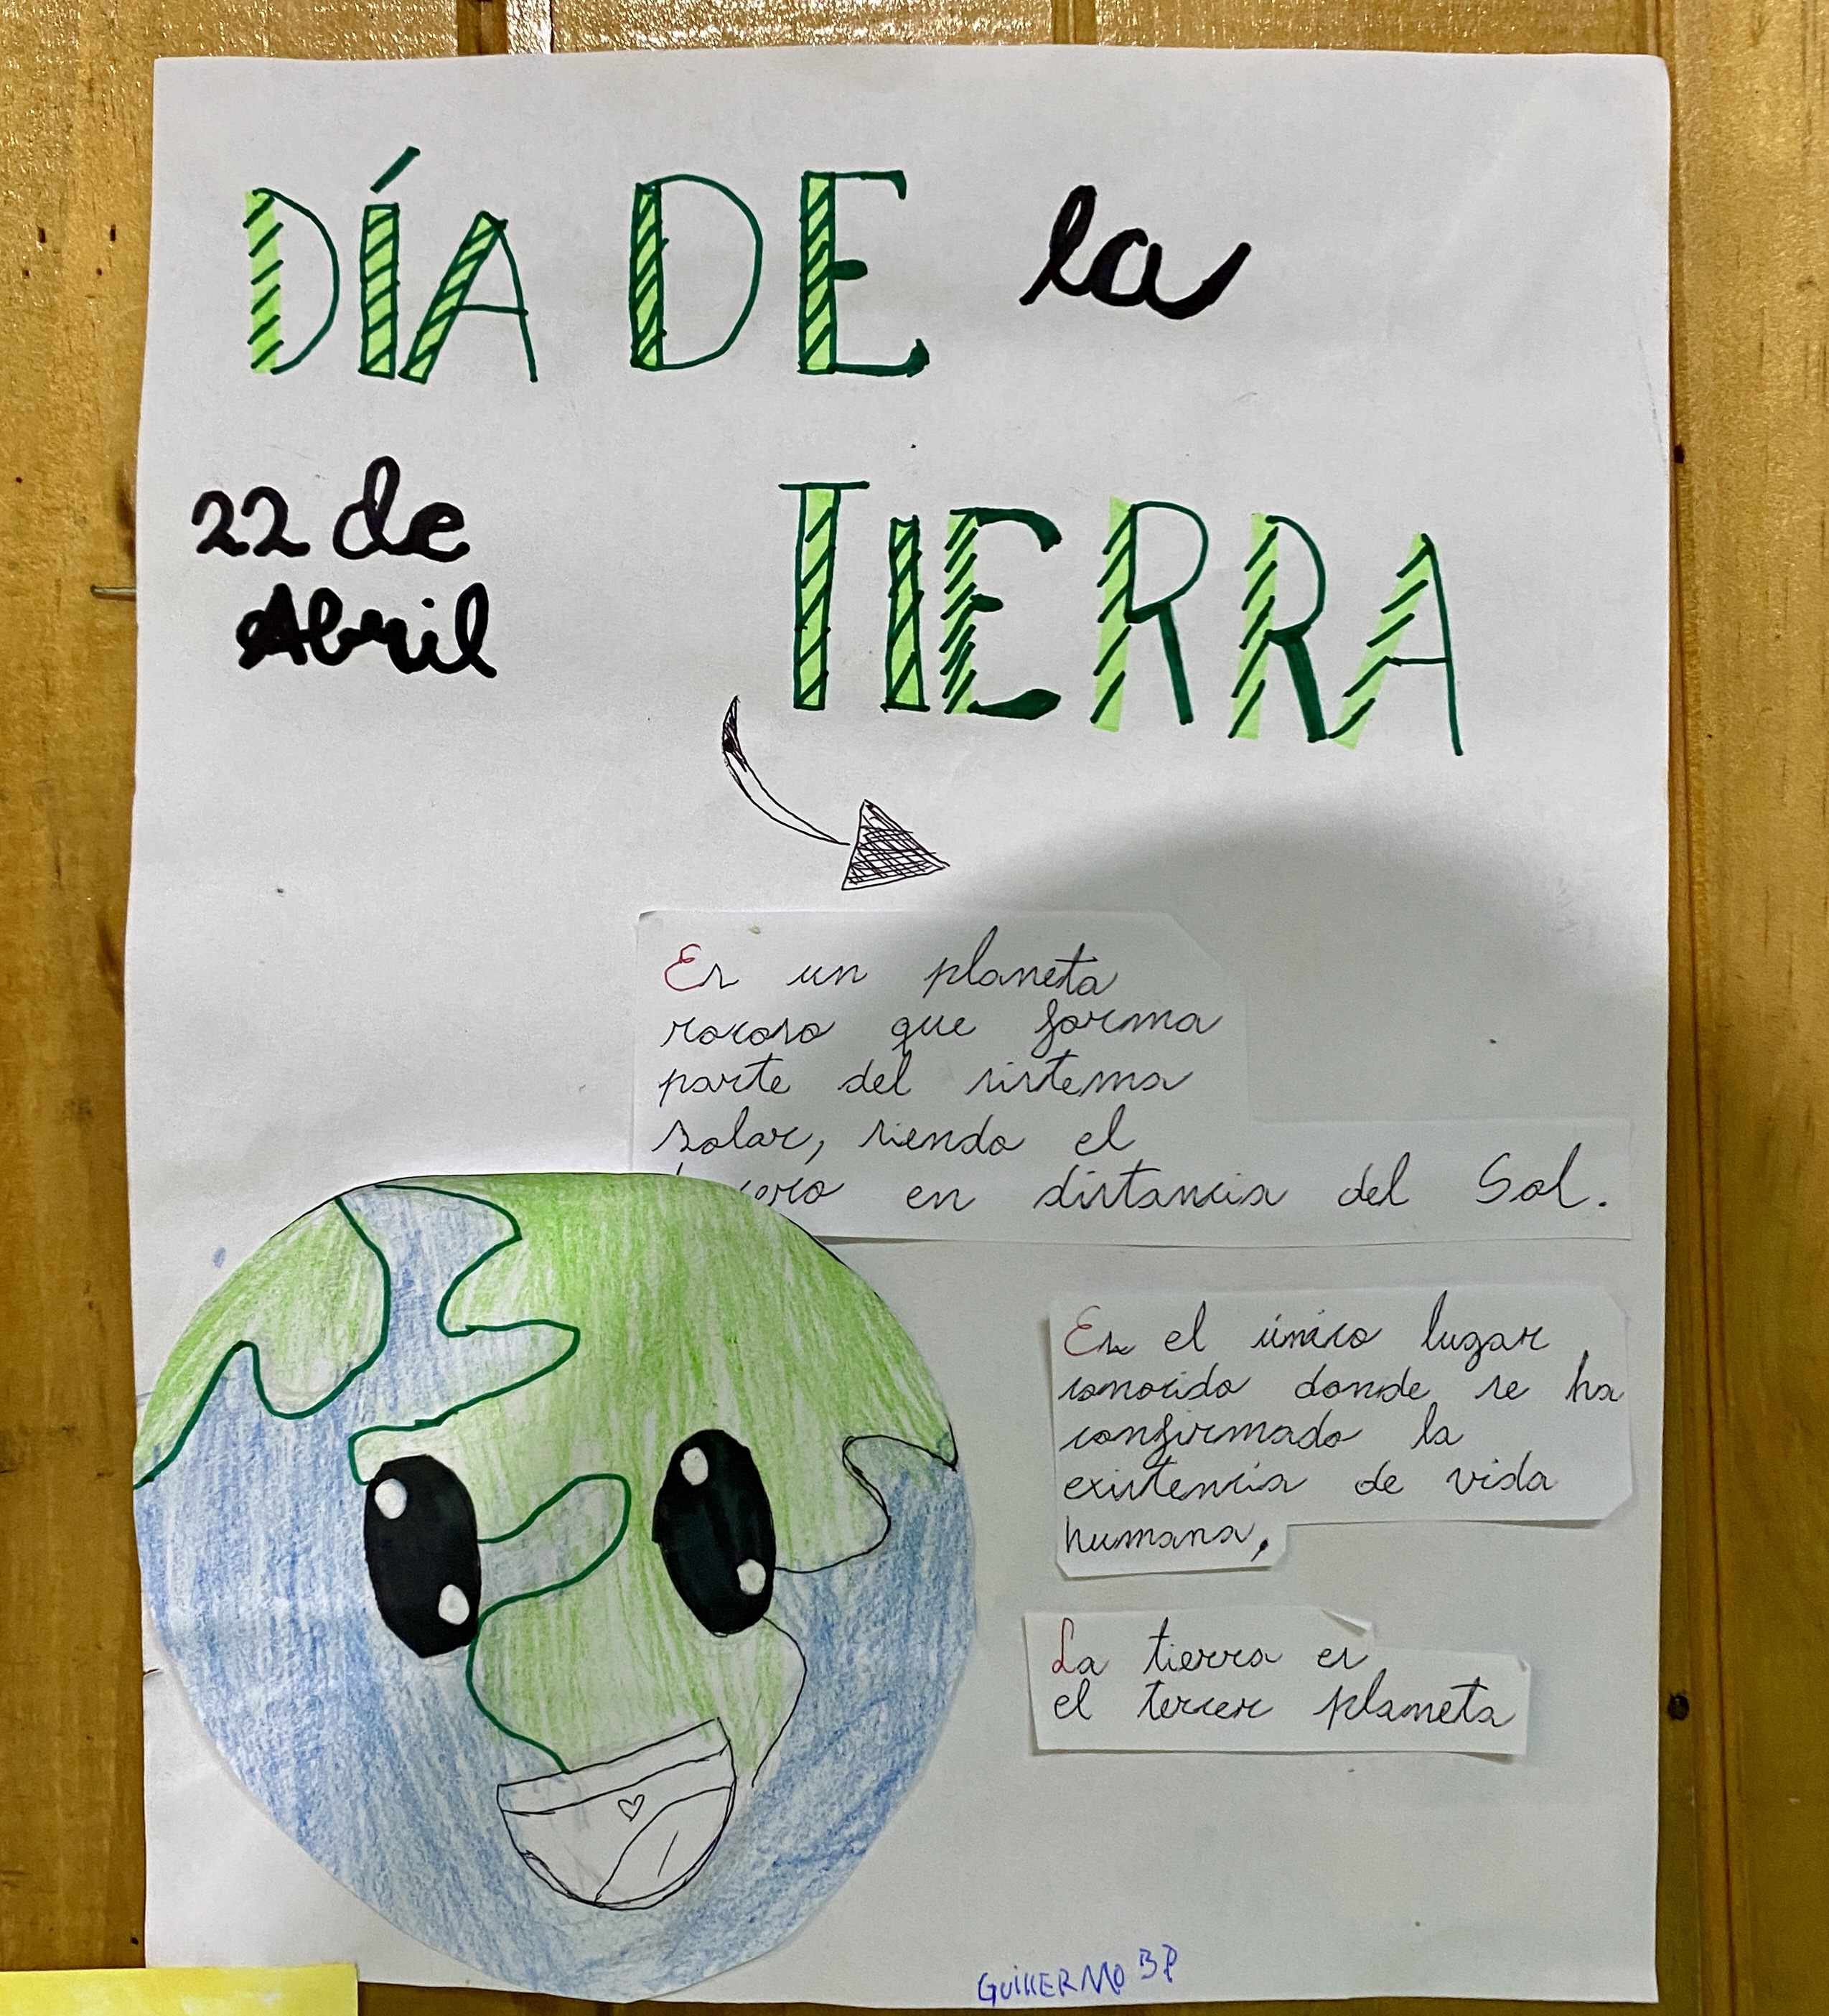 DÍA DE la
22 de
Abril
TIERRA
Es un planeta
rocoso que forma
parte del sistema
solar, siendo el
en distancia del Sol.
Es el único lugar
conocido donde se ha
confirmado la
existencia de vida
humana,
La tierra es
el tercer planeta
GUILLERMO 3P